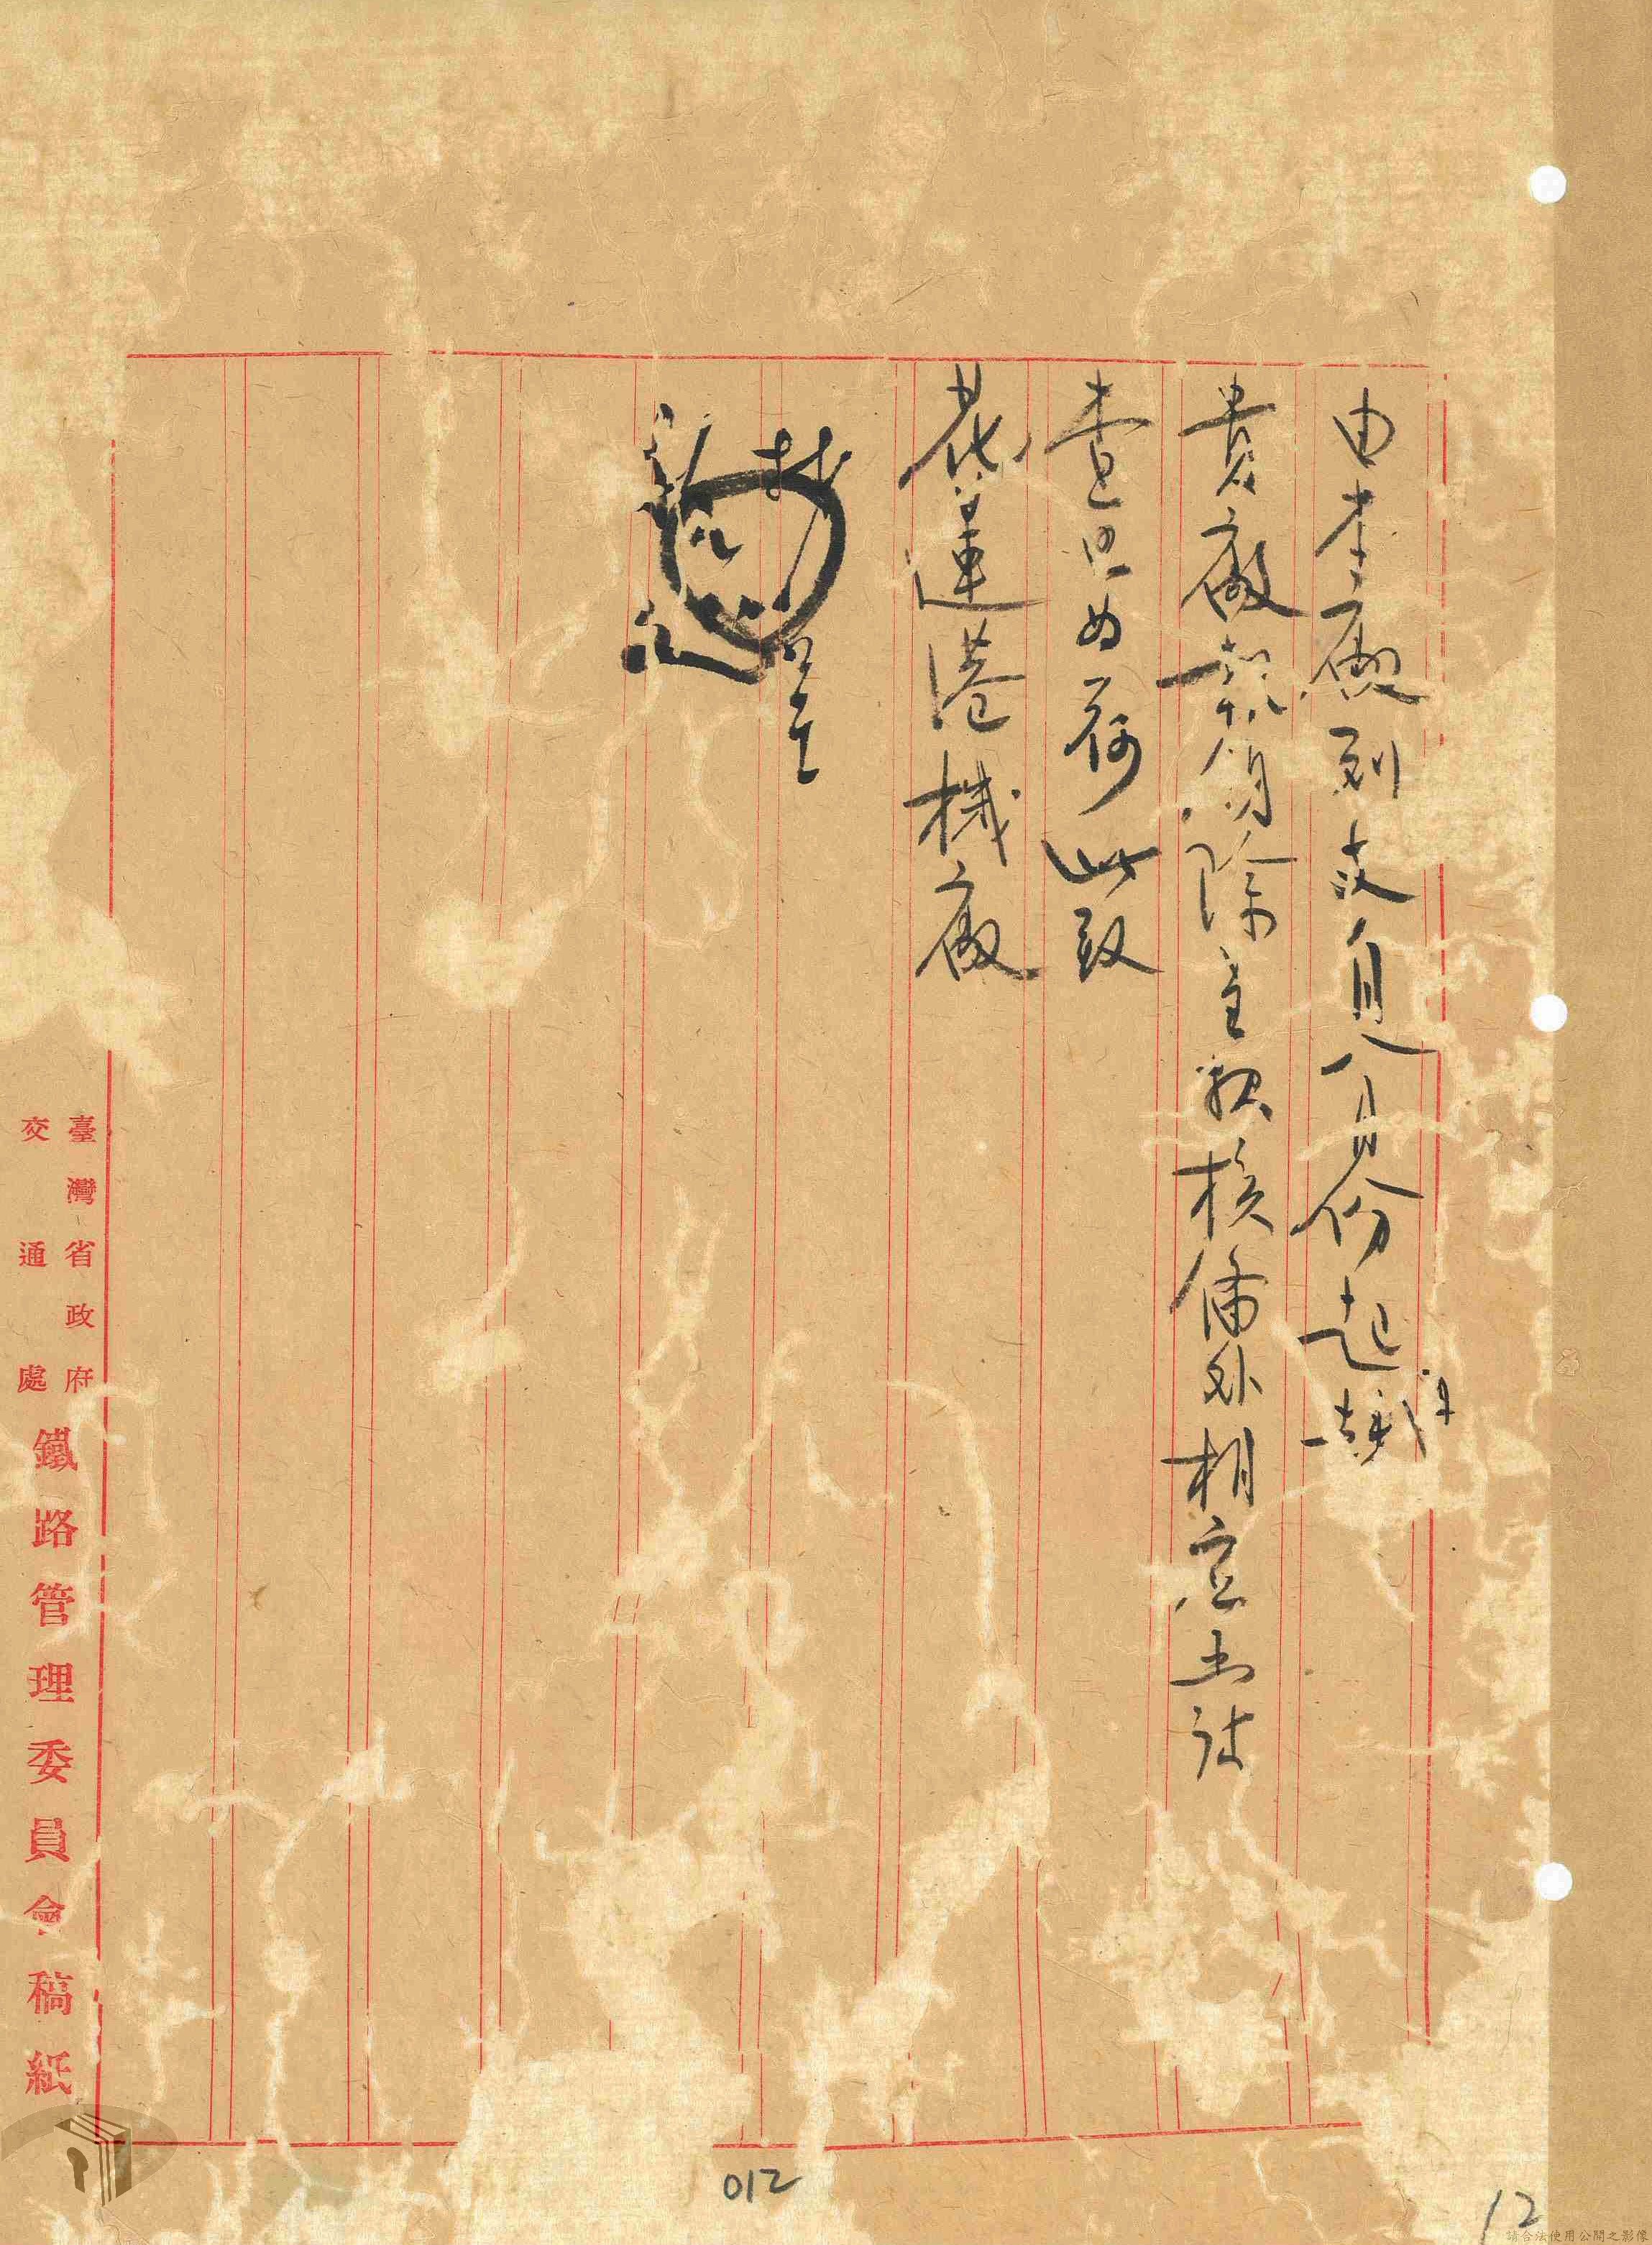 由本廠列支自八月份起
貴廠報領除呈報核備外相應函請
查照為荷此致
花蓮港機廠
臺灣省政府
交通處
鐵路管理委員會稿紙
012
12
請合法使用公開之影像